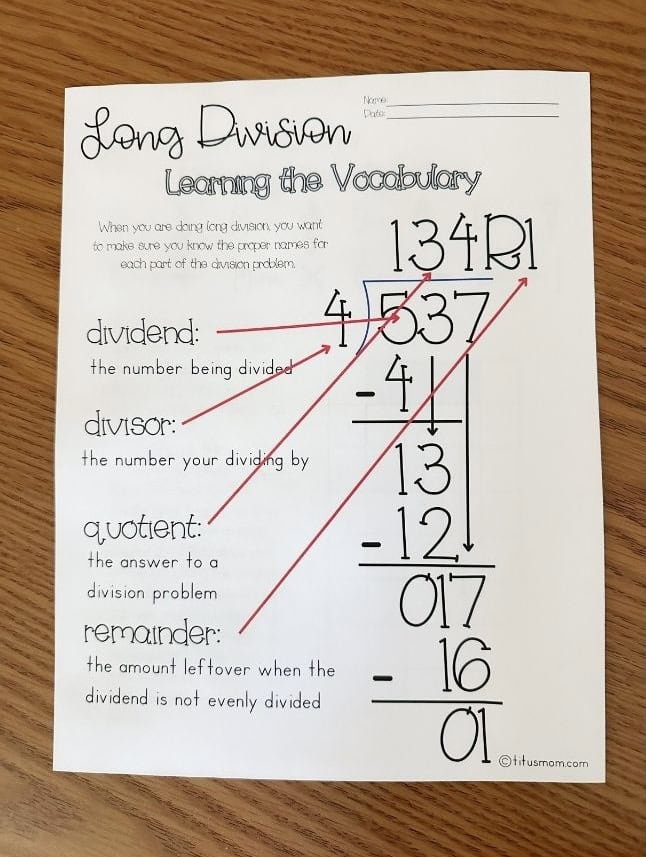 Name:
Date:
Long Division
Learning the Vocabulary
When you are doing long division, you want
to make sure you know the proper names for
each part of the division problem.
134R1
4 537
dividend:
the number being divided
- 4
divisor:
the number your dividing by
13
- 12
quotient:
the answer to a
division problem
017
remainder:
the amount leftover when the
dividend is not evenly divided
- 16
01
©titusmom.com